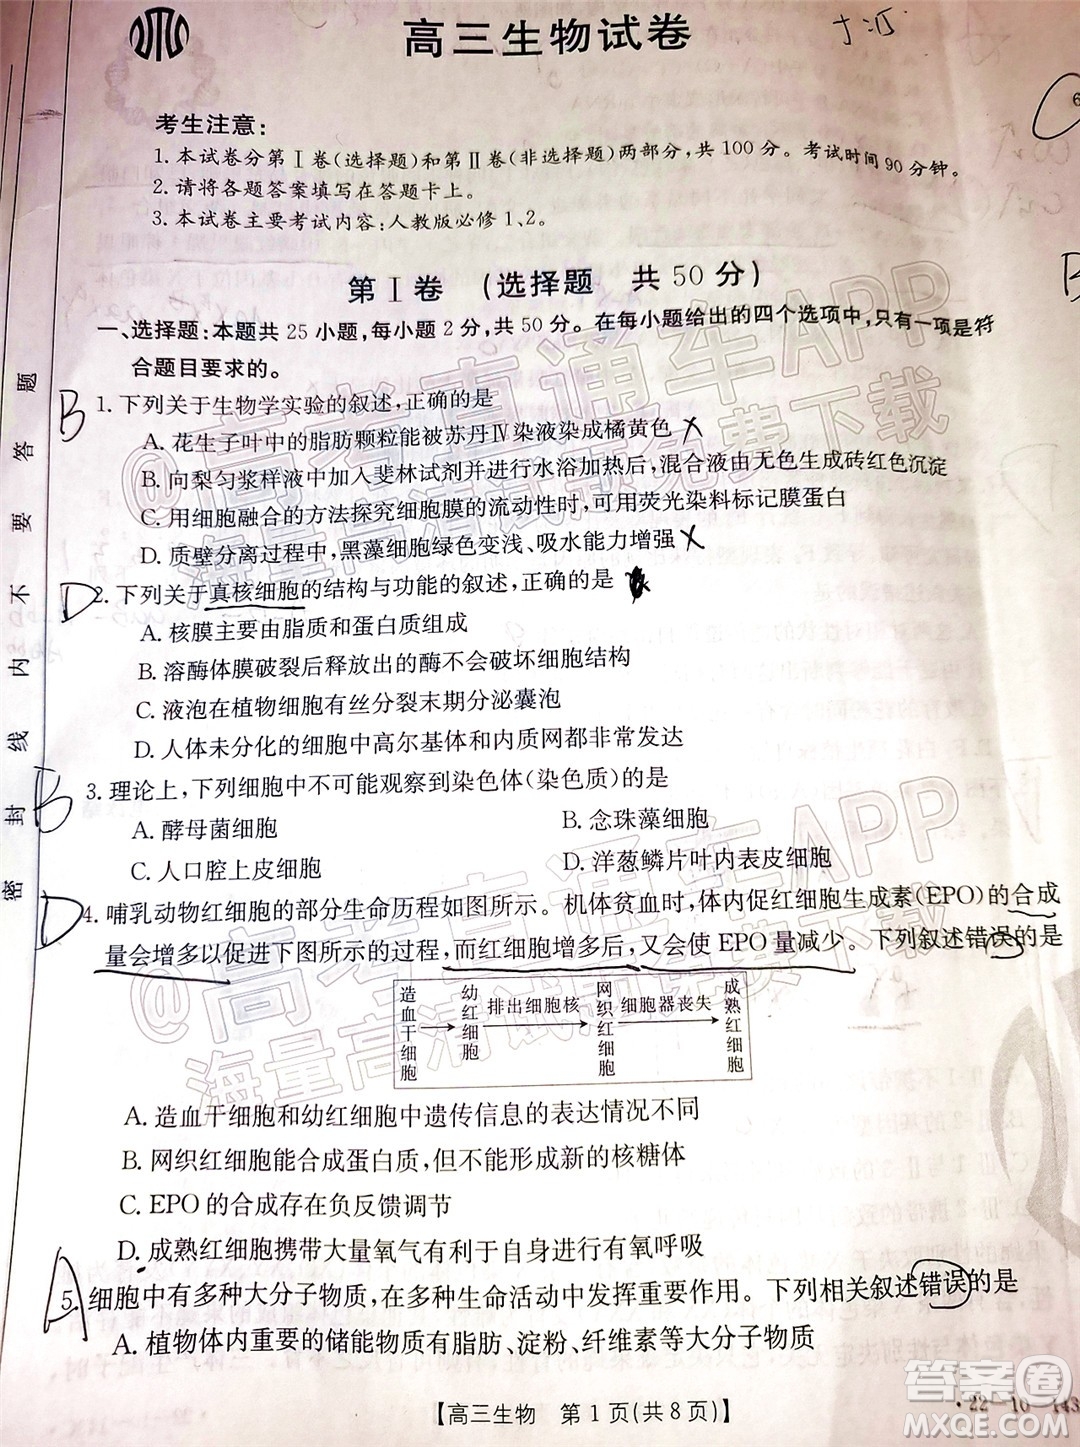 高三生物试卷
考生注意:
1.本试卷分第Ⅰ卷(选择题)和第Ⅱ卷(非选择题)两部分,共100分。考试时间90分钟。
2.请将各题答案填写在答题卡上。
3.本试卷主要考试内容:人教版必修1、2。
第Ⅰ卷 (选择题 共50分)
一、选择题:本题共25小题,每小题2分,共50分。在每小题给出的四个选项中,只有一项是符
合题目要求的。
B
1.下列关于生物学实验的叙述,正确的是
A.花生子叶中的脂肪颗粒能被苏丹Ⅳ染液染成橘黄色 X
B.向梨匀浆样液中加入斐林试剂并进行水浴加热后,混合液由无色生成砖红色沉淀
C.用细胞融合的方法探究细胞膜的流动性时,可用荧光染料标记膜蛋白
D.质壁分离过程中,黑藻细胞绿色变浅、吸水能力增强 X
D
2.下列关于真核细胞的结构与功能的叙述,正确的是
A.核膜主要由脂质和蛋白质组成
B.溶酶体膜破裂后释放出的酶不会破坏细胞结构
C.液泡在植物细胞有丝分裂末期分泌囊泡
D.人体未分化的细胞中高尔基体和内质网都非常发达
B
3.理论上,下列细胞中不可能观察到染色体(染色质)的是
A.酵母菌细胞 B.念珠藻细胞
C.人口腔上皮细胞 D.洋葱鳞片叶内表皮细胞
D
4.哺乳动物红细胞的部分生命历程如图所示。机体贫血时,体内促红细胞生成素(EPO)的合成
量会增多以促进下图所示的过程,而红细胞增多后,又会使EPO量减少。下列叙述错误的是
造血干细胞 幼红细胞 排出细胞核 网织红细胞 细胞器丧失 成熟红细胞
A.造血干细胞和幼红细胞中遗传信息的表达情况不同
B.网织红细胞能合成蛋白质,但不能形成新的核糖体
C.EPO的合成存在负反馈调节
D.成熟红细胞携带大量氧气有利于自身进行有氧呼吸
A
5.细胞中有多种大分子物质,在多种生命活动中发挥重要作用。下列相关叙述错误的是
A.植物体内重要的储能物质有脂肪、淀粉、纤维素等大分子物质
【高三生物 第1页(共8页)】
·22-10-143
密封线内不要答题
@高考直通车APP
海量高清试题免费下载
@高考直通车APP
海量高清试题免费下载
答案圈
MXQE.COM